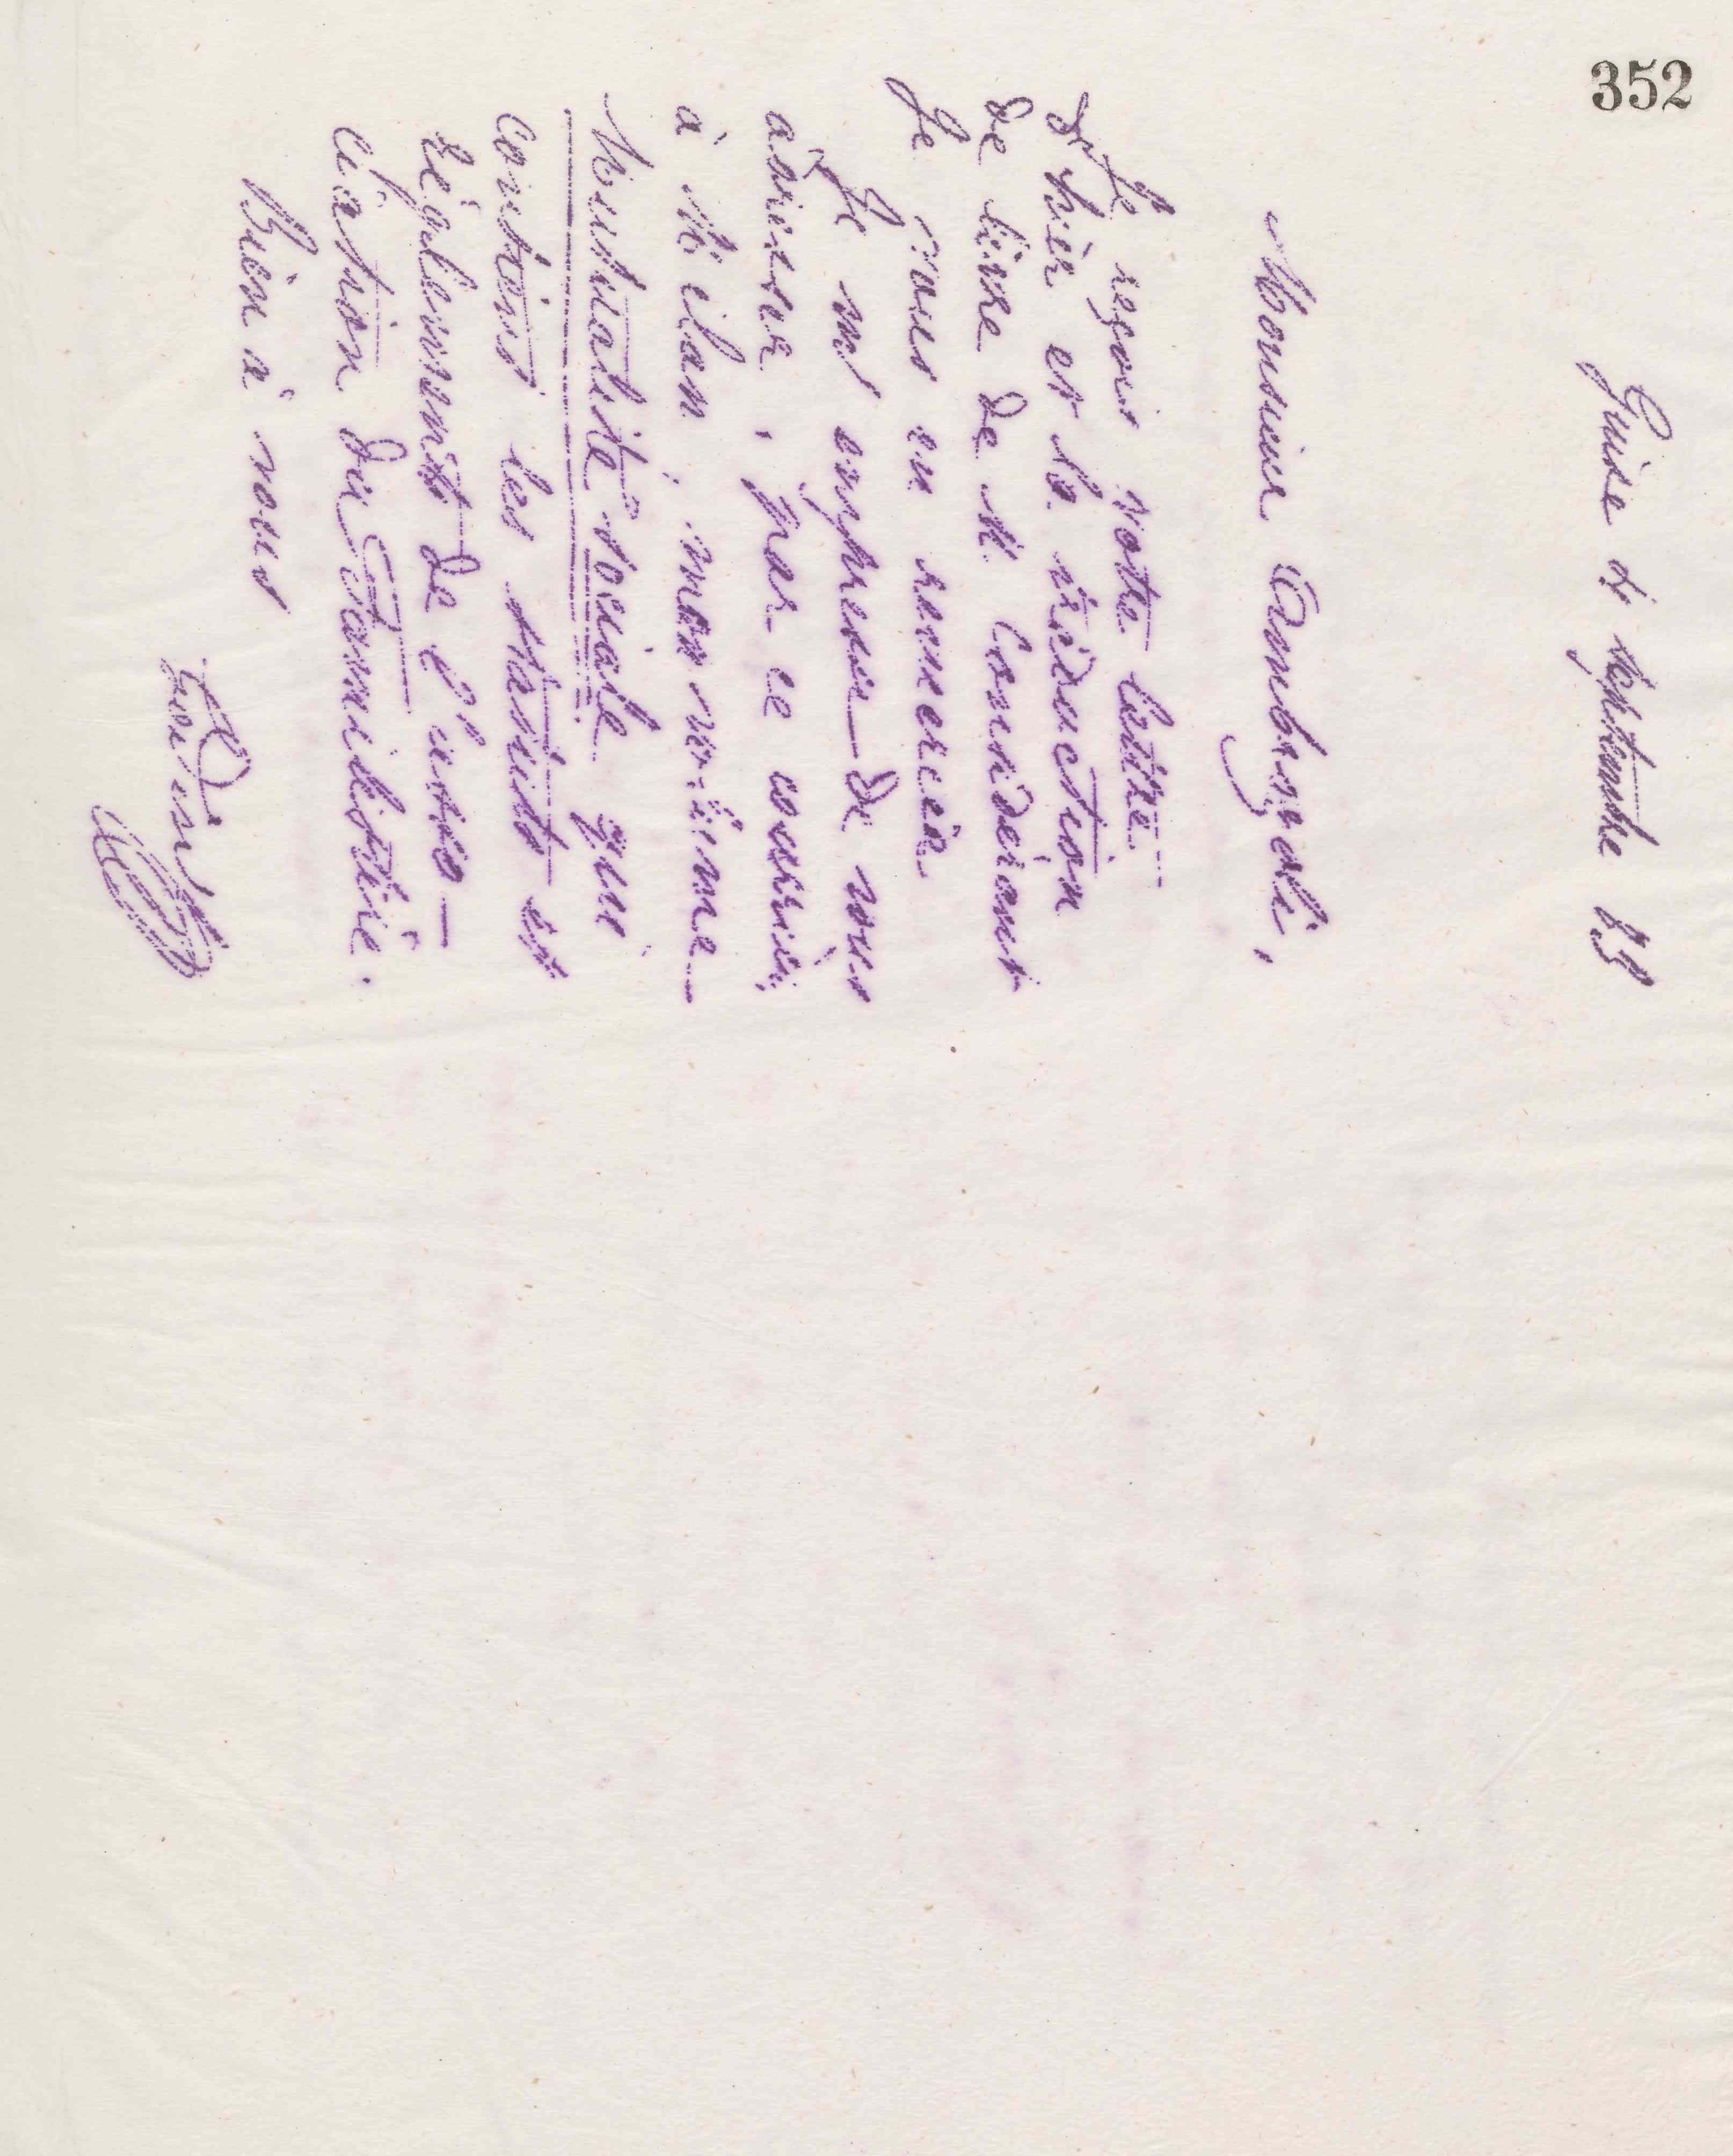 352
Guise 4 septembre 83
Monsieur Ambrogoli,
Je reçois votre lettre
d'hier et la traduction
de livre de M. Considérant
Je vous en remercie
Je m'empresse de vous
adresser, par ce courrier,
à Milan, mon volume
Mutualité sociale qui
contient les statuts et
règlements de l'asso-
ciation du Familistère.
Bien à vous
Godin